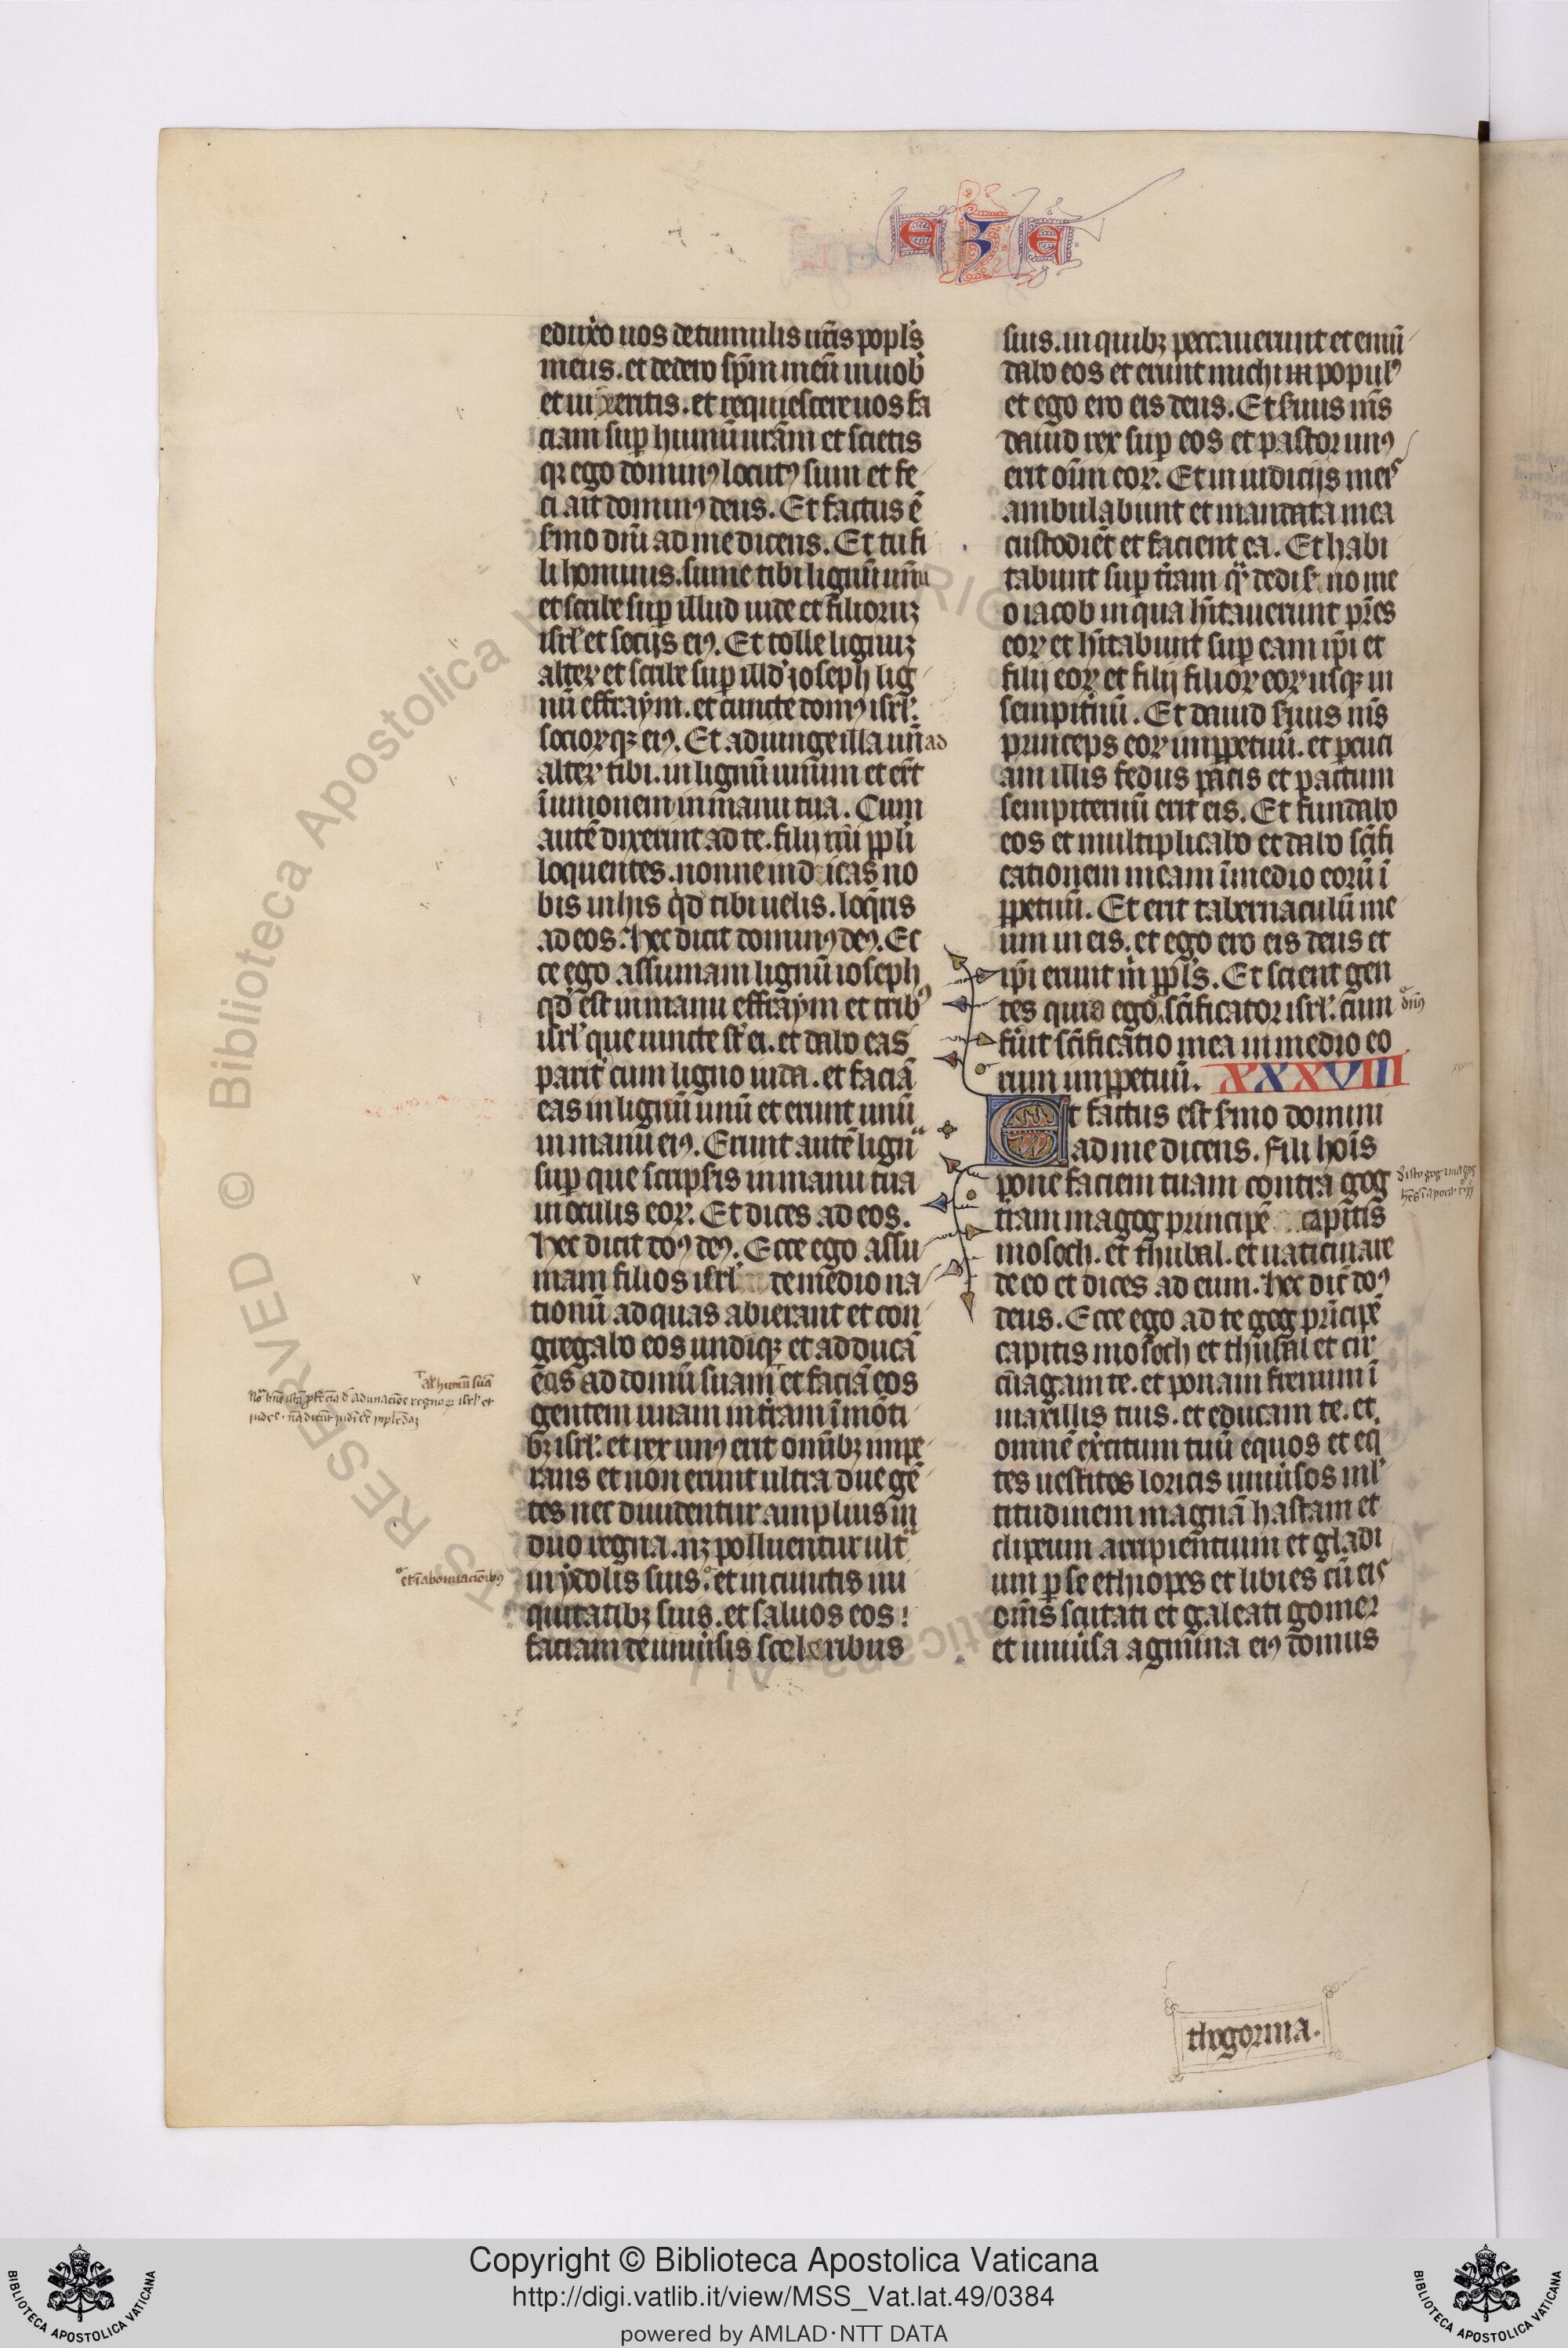 EZE
eduxo uos de tumulis ur̄is popl's
meus. et dedero sp̄m meū in uob'
et uixeritis. et requiescere uos fa
ciam sup humū ur̄am et scietis
qꝛ ego dominꝰ locutꝰ sum et fe
ci ait dominꝰ deus. Et factus ē
sermo dn̄i ad me dicens. Et tu fi
li hominis. sume tibi lignū unū
et scribe sup illud iude et filioruꝫ
isrl' et socijs eiꝰ. Et tolle lignuꝫ
alterꝝ et scribe sup illd' ioseph lig
nū effraym. et cuncte domꝰ isrl'.
sociorꝝqꝫ eiꝰ. Et adiunge illa unū ad
alterꝝ tibi. in lignū unum et er̄t
ī unionem in manu tua. Cum
autē dixerint ad te. filij pp̄li
loquentes. nonne indicas no
bis in his qd' tibi uelis. loq̄ris
ad eos. Hec dicit dominꝰ deꝰ. Ec
ce ego assumam lignū ioseph
qd' est in manu effraym et tribꝰ
isrl' que iuncte st̄ ei. et dabo eas
parit' cum ligno iuda. et faciā
eas in lignū unū et erunt unū
in manu eiꝰ. Erunt autē ligna
sup que scripsis in manu tua
in oculis eorꝝ. Et dices ad eos.
Hec dicit do' deꝰ. Ecce ego assu
mam filios isrl' de medio na
tionū ad quas abierant et con
gregabo eos undiqꝫ et adducā
eos ad domū suam et faciā eos
gentem unam in tr̄am ī mōti
bꝫ isrl'. et rex unꝰ erit omībꝫ impe
rans et non erunt ultra due gē
tes nec diuidentur amplius in
duo regna. nꝫ polluentur ult^a
in ydolis suis. et in cunctis ini
quitatibꝫ suis. et saluos eos
faciam de uniu'sis sceleribus
al' humū suā
et ī abominacōibꝰ
suis. in quibꝫ peccauerunt et emū
dabo eos et erunt michi in populꝰ
et ego ero eis deus. Et s'uus m̄s
dauid rex sup eos et pastor unꝰ
erit om̄n eorꝝ. Et in iudicijs meis
ambulabunt et mandata mea
custodiēt et facient ea. Et habi
tabunt sup tr̄am q^a dedi s'uo me
o iacob in qua hītauerunt pr̄es
eorꝝ et hītabunt sup eam ip̄i et
filij eorꝝ et filij filiorꝝ eorꝝ usqꝫ in
sempit'nū. Et dauid s'uus m̄s
princeps eorꝝ in ꝑpetuū. et ꝑcuti
am illis fedus pacis et pactum
sempiternū erit eis. Et fundabo
eos et multiplicabo et dabo sc̄ifi
cationem meam ī medio eorū ī
ꝑpetuū. Et erit tabernaculū me
um in eis. et ego ero eis deus et
ip̄i erunt m̄ pp̄l's. Et scient gen
tes quia ego sc̄ificator isrl'. cum
dn̄s
fu'it sc̄ificatio mea in medio eo
rum in ꝑpetuū. XXXVIII
Et factus est s'mo domini
ad me dicens. Fili hoīs
pone faciem tuam contra gog
tr̄am magog principē capitis
mosoch. et thubal. et uaticinare
de eo et dices ad eum. Hec dic̄ do'
deus. Ecce ego ad te gog principē
capitis mosoch et thubal et cir
cūagam te. et ponam frenum ī
maxillis tuis. et educam te. et
omnē ex'citum tuū equos et eq̄
tes uestitos loricis uniu'sos ml'
titudinem magnā hastam et
clipeum arripientium et gladi
um p se ethiopes et libies cū eis
om̄s scutati et galeati gomer
et uniu'sa agmina eiꝰ domus
thogorma.
© Biblioteca Apostolica Vaticana
Copyright © Biblioteca Apostolica Vaticana
http://digi.vatlib.it/view/MSS_Vat.lat.49/0384
powered by AMLAD·NTT DATA
BIBLIOTECA APOSTOLICA VATICANA
BIBLIOTECA APOSTOLICA VATICANA